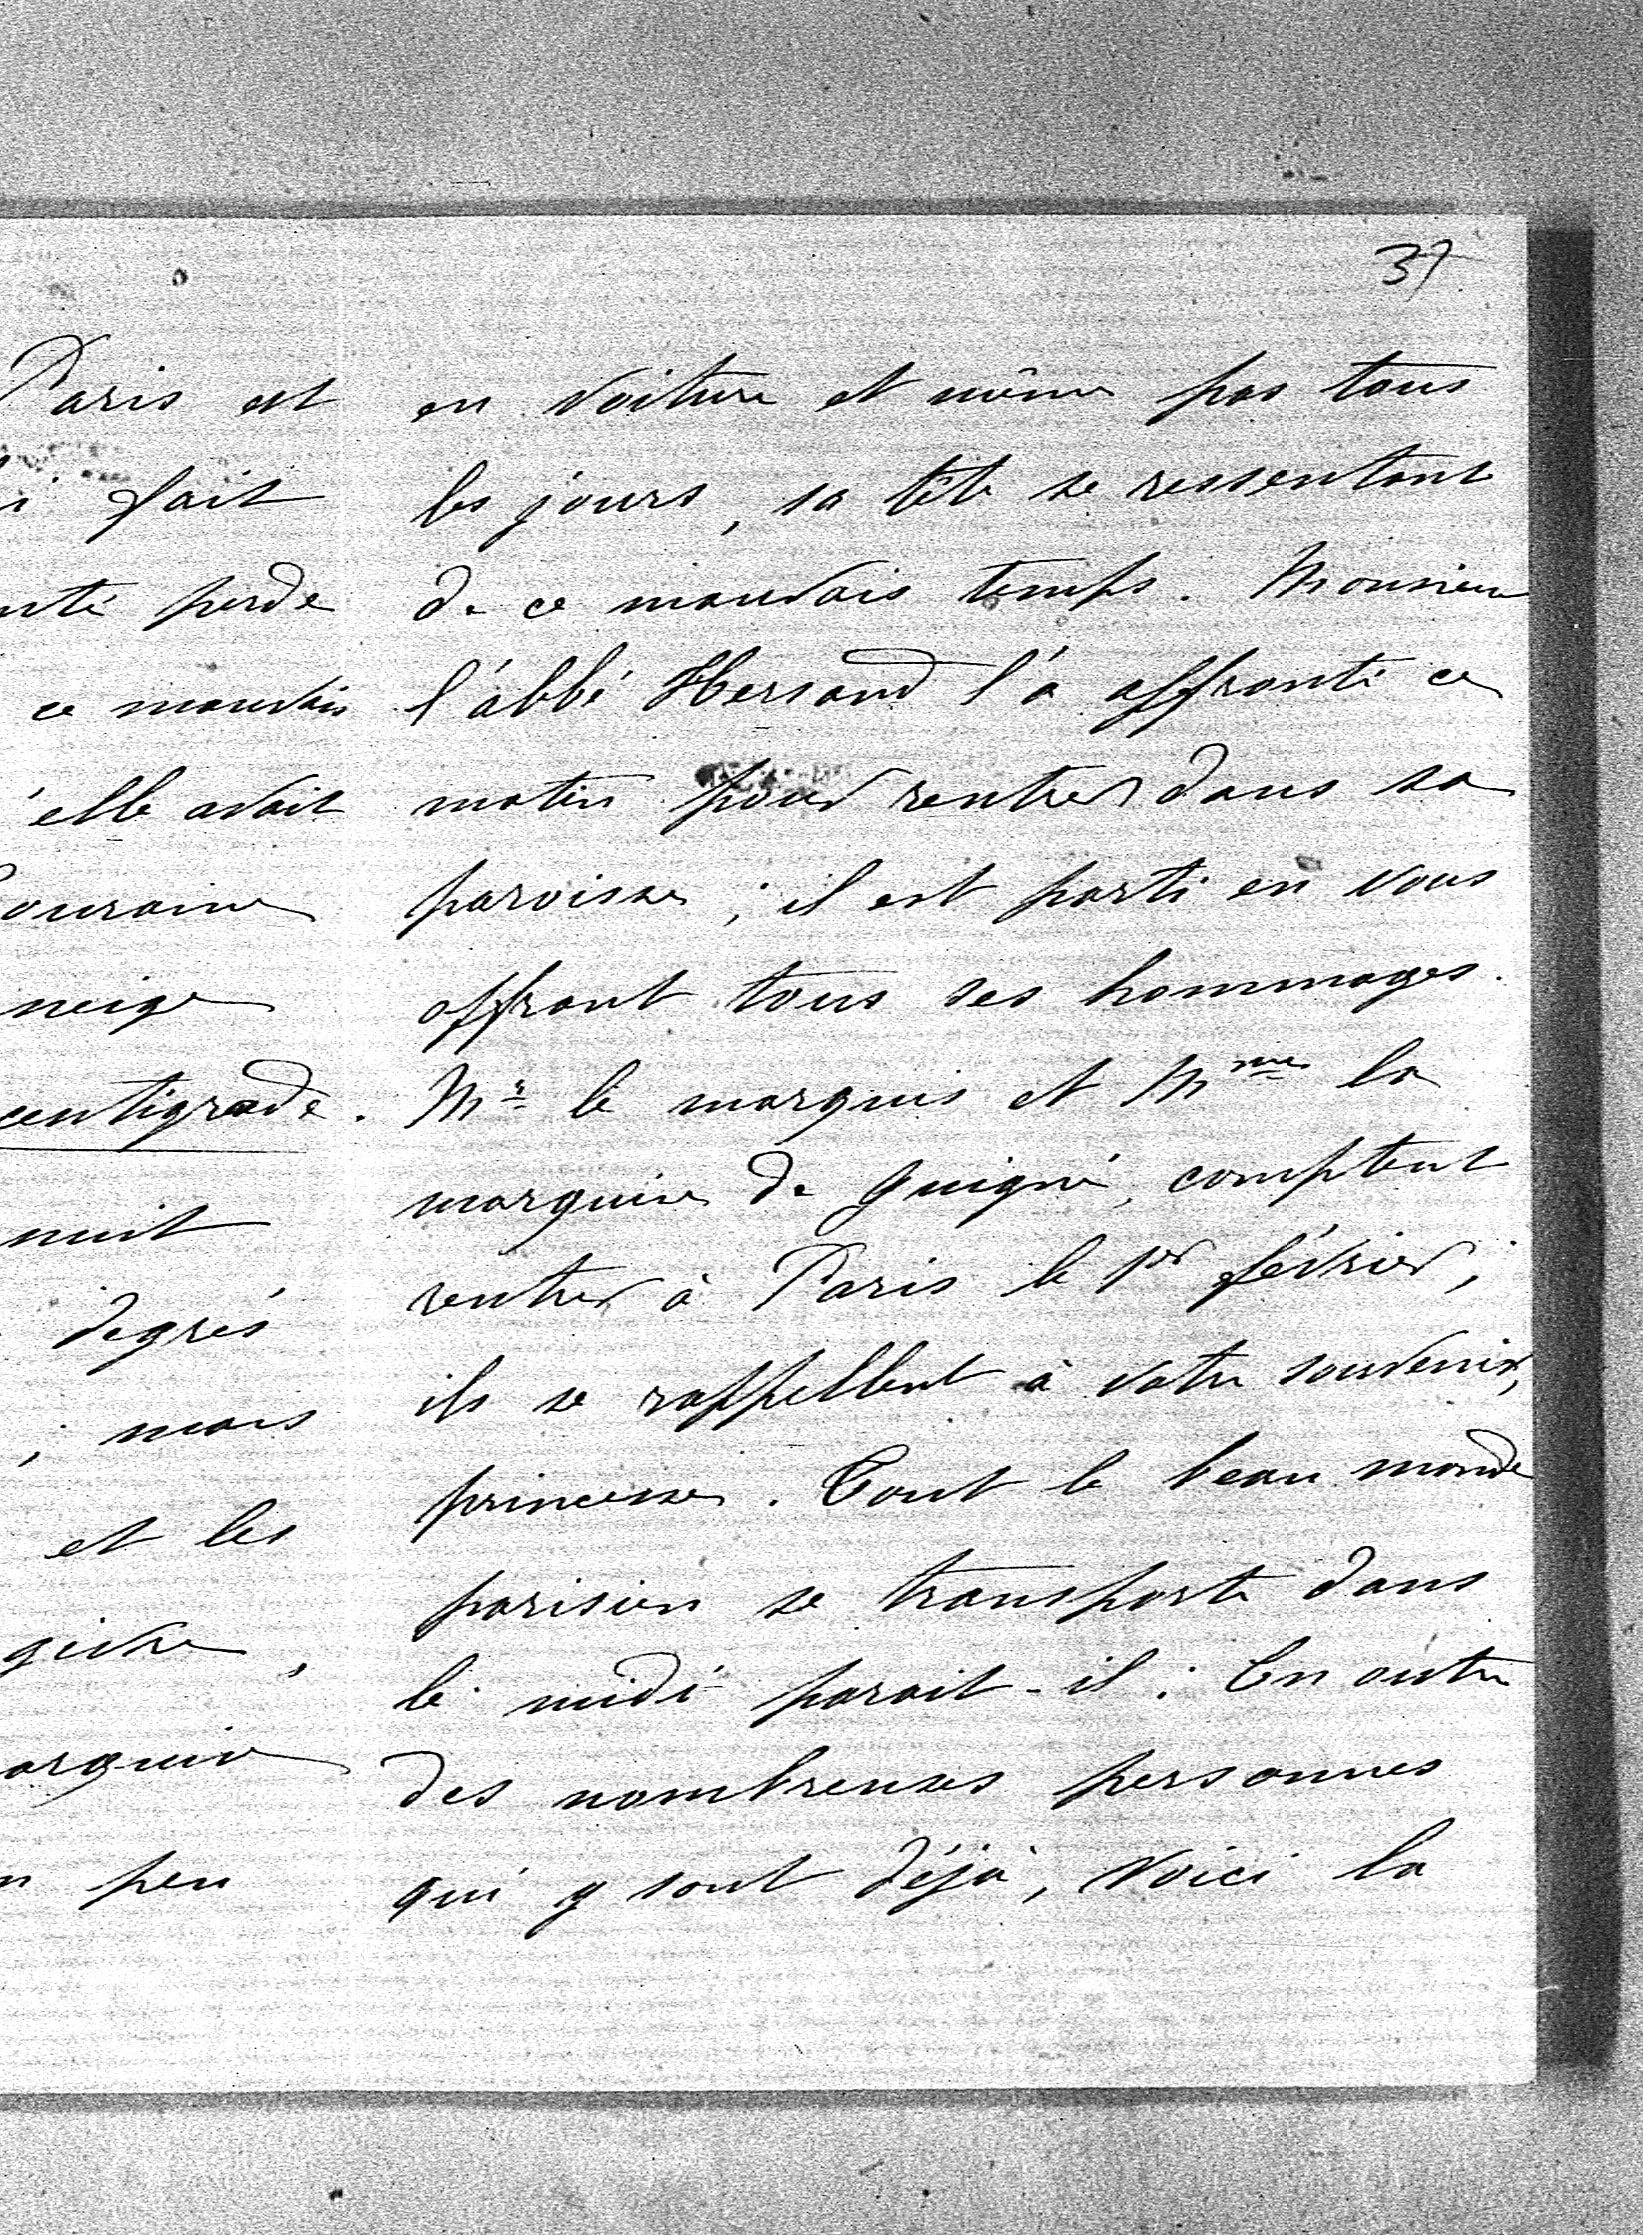 37
Paris est
i fait
nté perde
ce mauvais
'elle avait
ouraine
neige
centigrade.
nuit
degrés
; mais
et les
givre,
arquise
n peu
en voiture et même pas tous
les jours, sa tête se ressentant
de ce mauvais temps. Monsieur
l'abbé Hersand l'a affronté ce
matin pour rentrer dans sa
paroisse ; il est parti en vous
offrant tous ses hommages.
Mr le marquis et Mme la
marquise de Guigné, comptent
rentrer à Paris le 1er février ;
ils se rappellent à votre souvenir,
princesse. Tout le beau monde
parisien se transporte dans
le midi parait-il : En outre
des nombreuses personnes
qui y sont déjà, voici la